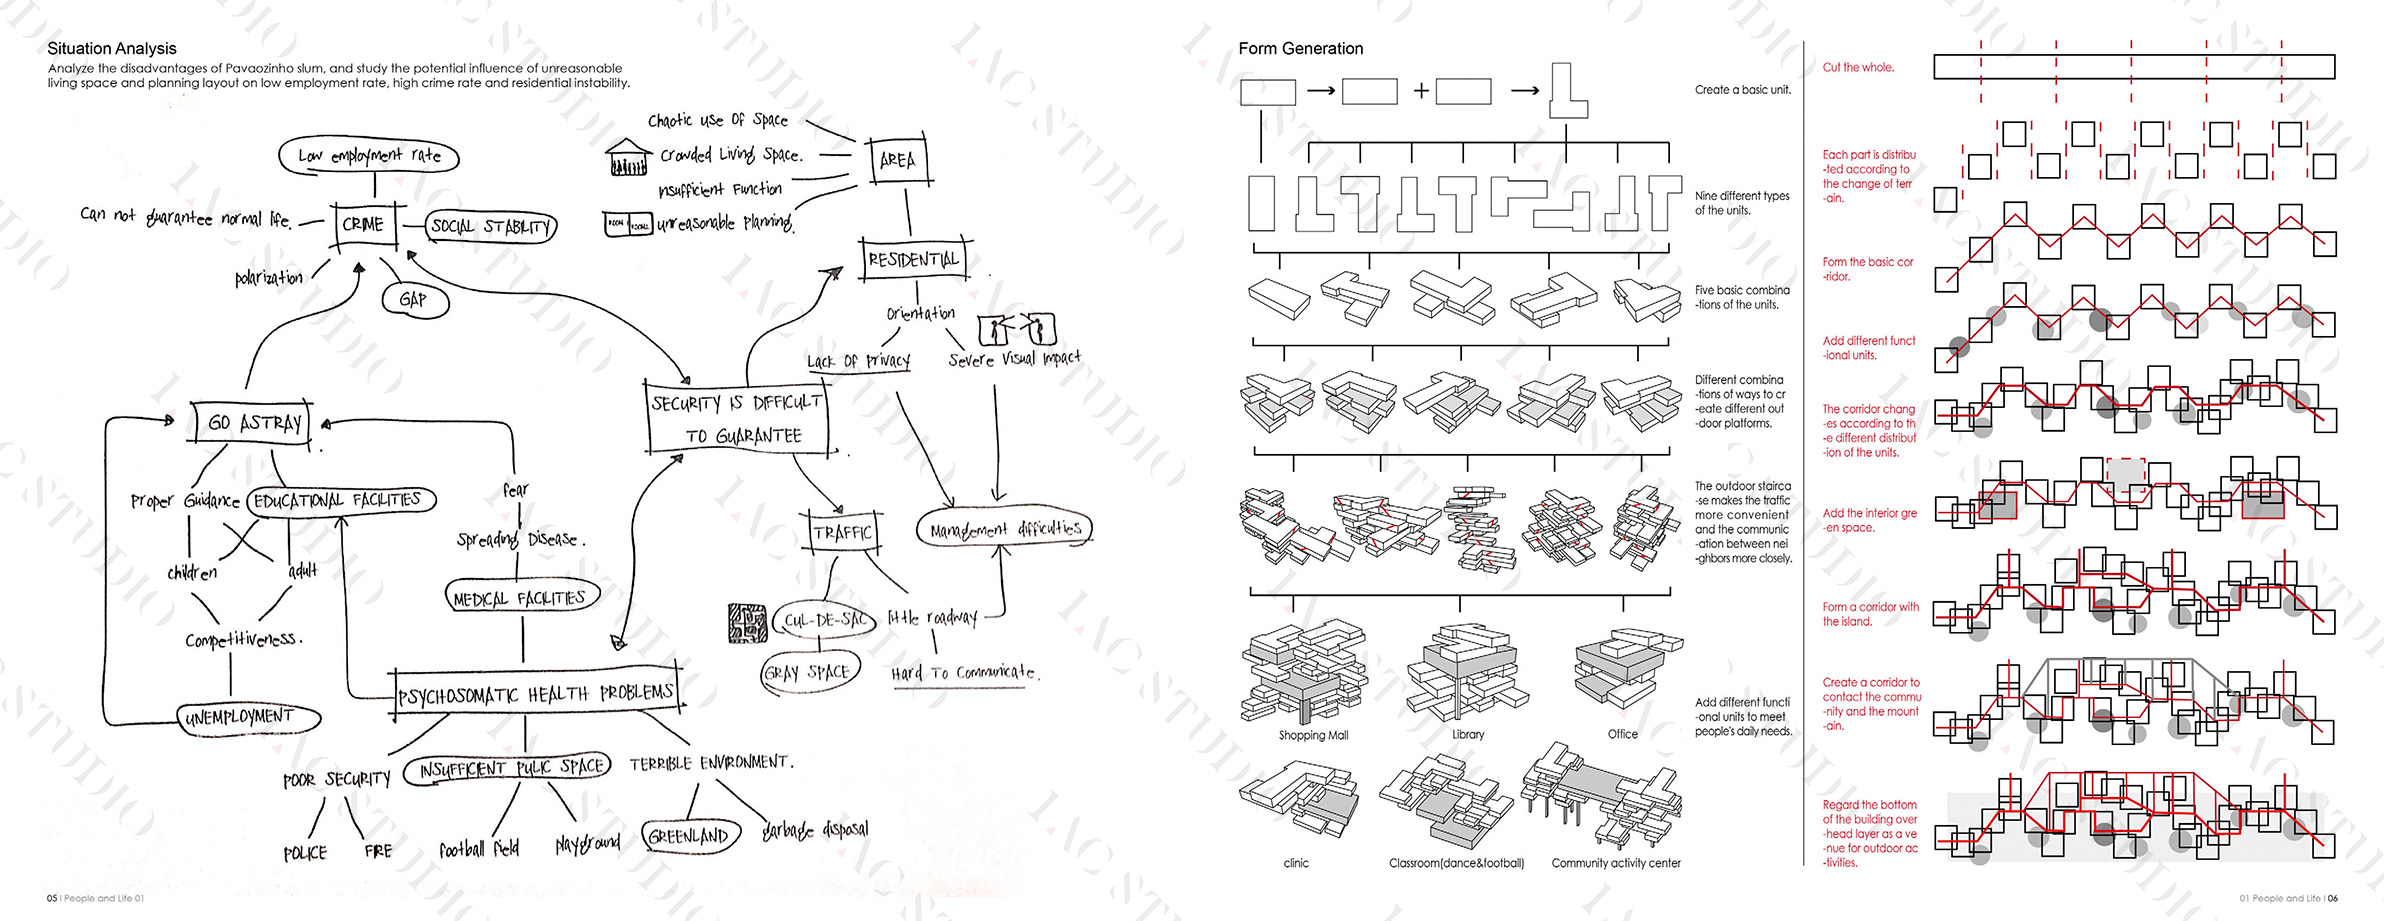 Situation Analysis
Analyze the disadvantages of Pavaozinho slum, and study the potential influence of unreasonable
living space and planning layout on low employment rate, high crime rate and residential instability.
Low employment rate
Can not guarantee normal life.
CRIME
SOCIAL STABILITY
polarization
GAP
Chaotic use Of Space
Crowded Living Space.
insufficient Function
ROOM 1
ROOM 2
unreasonable Planning.
AREA
RESIDENTIAL
Orientation
Lack Of privacy
Severe Visual Impact
GO ASTRAY
SECURITY IS DIFFICULT
TO GUARANTEE
Proper Guidance
EDUCATIONAL FACILITIES
fear
Spreading Disease.
children
adult
MEDICAL FACILITIES
TRAFFIC
Management difficulties
CUL-DE-SAC
little roadway
GRAY SPACE
Hard To Communicate.
Competitiveness.
UNEMPLOYMENT
PSYCHOSOMATIC HEALTH PROBLEMS
POOR SECURITY
INSUFFICIENT PULIC SPACE
TERRIBLE ENVIRONMENT.
POLICE
FIRE
football field
playground
GREENLAND
garbage disposal
05 | People and Life 01
Form Generation
Create a basic unit.
Nine different types
of the units.
Five basic combina
-tions of the units.
Different combina
-tions of ways to cr
-eate different out
-door platforms.
The outdoor stairca
-se makes the traffic
more convenient
and the communic
-ation between nei
-ghbors more closely.
Shopping Mall
Library
Office
Add different functi
-onal units to meet
people's daily needs.
clinic
Classroom(dance&football)
Community activity center
Cut the whole.
Each part is distribu
-ted according to
the change of terr
-ain.
Form the basic cor
-ridor.
Add different funct
-ional units.
The corridor chang
-es according to th
-e different distribut
-ion of the units.
Add the interior gre
-en space.
Form a corridor with
the island.
Create a corridor to
contact the commu
-nity and the mount
-ain.
Regard the bottom
of the building over
-head layer as a ve
-nue for outdoor ac
-tivities.
01 People and Life | 06